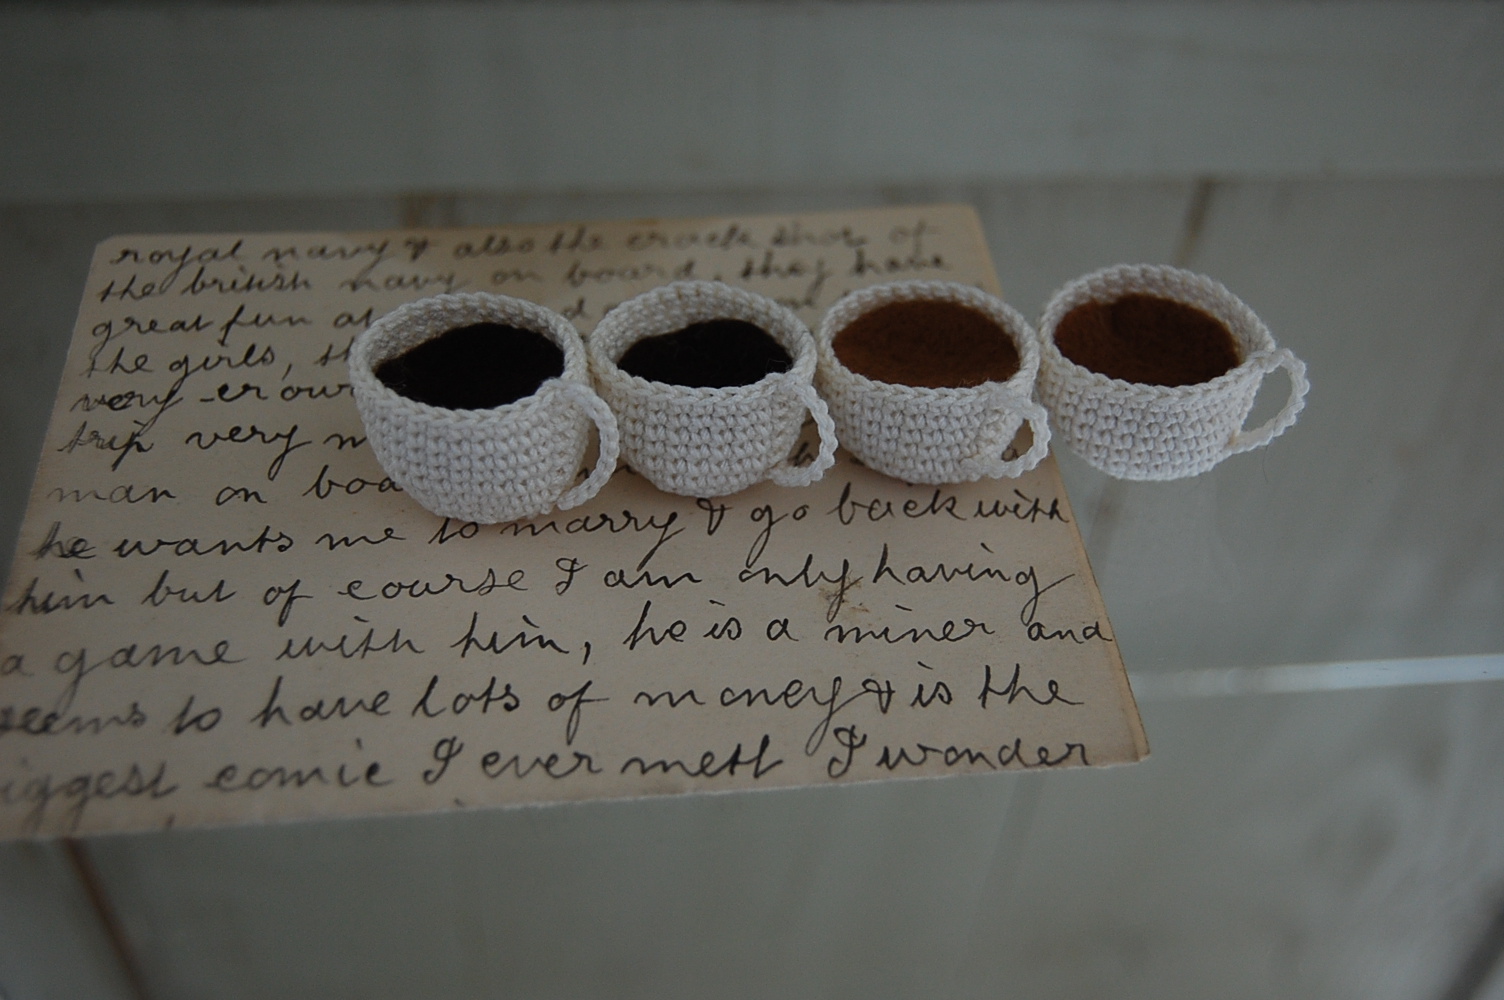 royal navy & also the crack shot of
the british navy on board, they have
great fun at
the girls, th
very crow
trip very m
man on boa
he wants me to marry & go back with
him but of course I am only having
a game with him, he is a miner and
seems to have lots of money & is the
iggest comic I ever mett I wonder